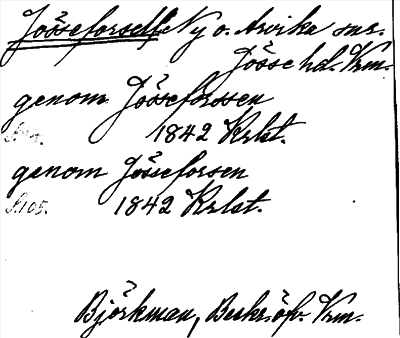 Jösseforself. Ny o. Arvika snr.
Jösse hd. Vrm.
genom Jösseforssen
1842 Krlst.
genom Jösseforsen
S.105. 1842 Krlst.
Björkman, Beskr. öfv. Vrm.